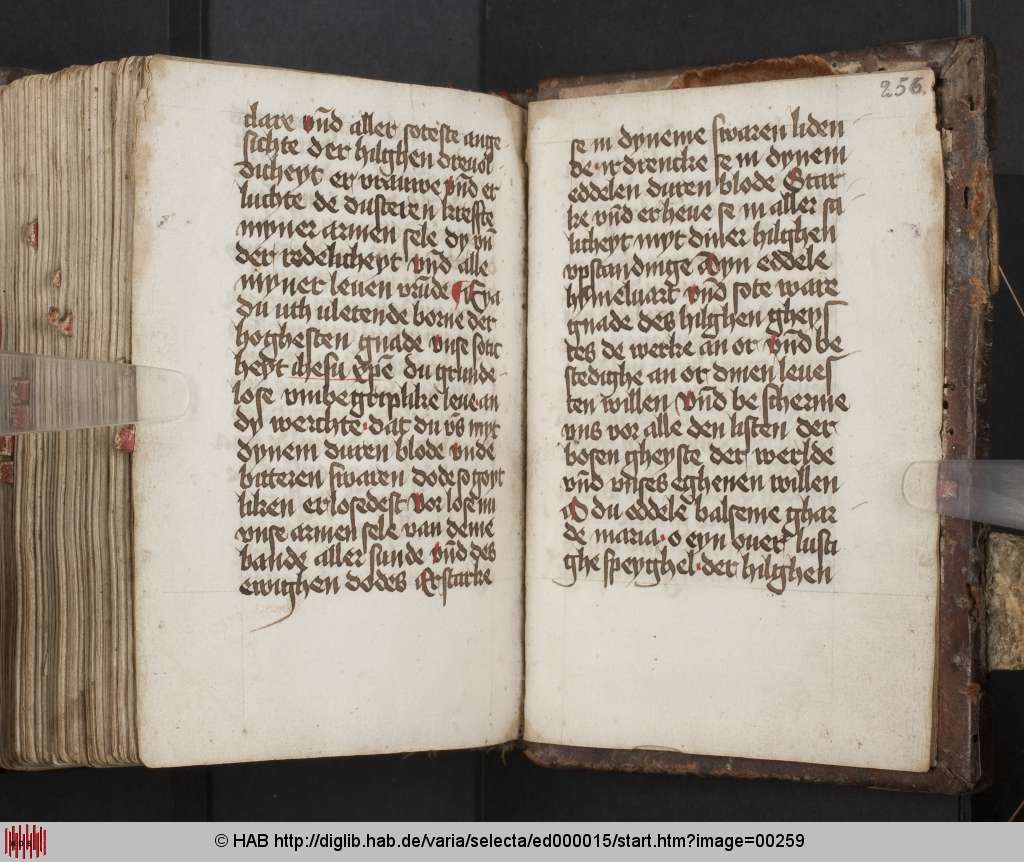 clare vn̄d aller soteste ange
sichte der hilghen dreuol
dicheyt er vrauwe vn̄d er
luchte de dusteren kreffte
myner armen sele dy vn̄
der redelicheyt vn̄d alle
myner leuen vru̅de Eya
du uth uletende borne der
hoghesten gnade vnse sotic
heyt ihesu xp̄e du grunde
lose vmbegriplike leue an
dy werchte · dat du vn̄s myt
dynem duren blode vnde
bitteren swaren dode so goyt
liken erlosedest vor lose nu
vnse armen sele van deme
bande aller sunde vn̄d des
ewighen dodes Erstarke
256
se in dyneme swaren liden
de · ir drencke se in dynem
eddelen duren blode Star
ke vn̄d erheue se in aller sa
licheyt myt diner hilghen
vpstandinge Dyn eddele
hymeluart vn̄d sote ware
gnade des hilghen gheys
tes de werke an or vn̄d be
stedighe an or dinen leues
ten willen vn̄d be scherme
vns vor alle den listen der
bosen gheyste der werlde
vn̄d vnses eghenen willen
O du eddele balseme ghar
de maria · o eyn ouer lusti
ghe speyghel · der hilghen
© HAB http://diglib.hab.de/varia/selecta/ed000015/start.htm?image=00259